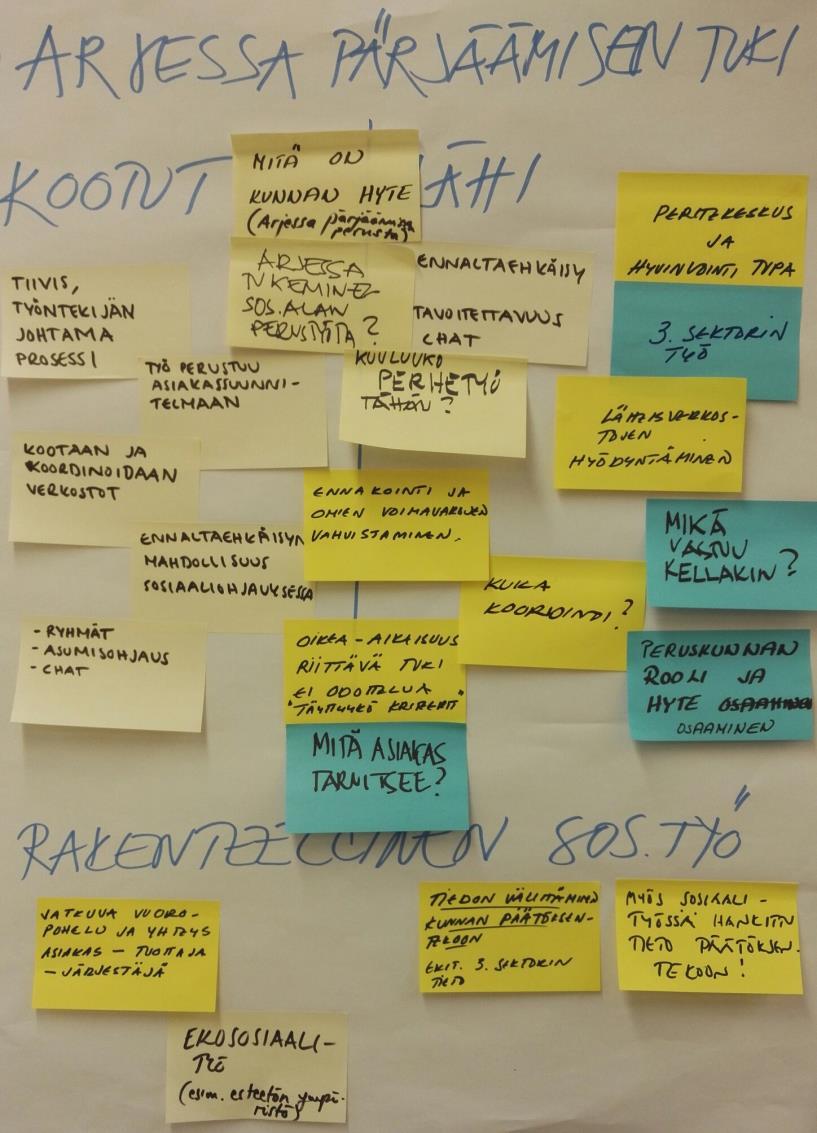 ARJESSA PÄRJÄÄMISEN TUKI
KOONT
ÄHI
MITÄ ON
KUNNAN HYTE
(Arjessa pärjäämisen
perusta)
ARJESSA
TUKEMINEN
SOS.ALAN
PERUSTYÖTÄ?
ENNALTAEHKÄISY
TAVOITETTAVUUS
CHAT
TIIVIS,
TYÖNTEKIJÄN
JOHTAMA
PROSESSI
TYÖ PERUSTUU
ASIAKASSUUNNI-
TELMAAN
KUULUUKO
PERHETYÖ
TÄHÄN?
PERHEKESKUS
JA
HYVINVOINTI TUPA
3. SEKTORIN
TYÖ
LÄHEISVERKOS-
TOJEN
HYÖDYNTÄMINEN
KOOTAAN JA
KOORDINOIDAAN
VERKOSTOT
ENNAKOINTI JA
OMIEN VOIMAVAROJEN
VAHVISTAMINEN.
MIKÄ
VASTUU
KELLÄKIN?
ENNALTAEHKÄISYN
MAHDOLLISUUS
SOSIAALIOHJAUKSESSA
KUKA
KOORDINOI?
- RYHMÄT
- ASUMISOHJAUS
- CHAT
OIKEA-AIKAISUUS
RIITTÄVÄ TUKI
EI ODOTTELUA
"TÄYTTYYKÖ KRITEERIT"
PERUSKUNNAN
ROOLI JA
HYTE OSAAMINEN
OSAAMINEN
MITÄ ASIAKAS
TARVITSEE?
RAKENTEELLINEN SOS.TYÖ
JATKUVA VUORO-
POHELU JA YHTEYS
ASIAKAS - TUOTTAJA
- JÄRJESTÄJÄ
TIEDON VÄLITTÄMINEN
KUNNAN PÄÄTÖKSEN-
TEKOON
ERIT. 3. SEKTORIN
TIETO
MYÖS SOSIAALI-
TYÖSSÄ HANKITTU
TIETO PÄÄTÖKSEN-
TEKOON!
EKOSOSIAALI-
(esim. esteetön ympä-
ristö)